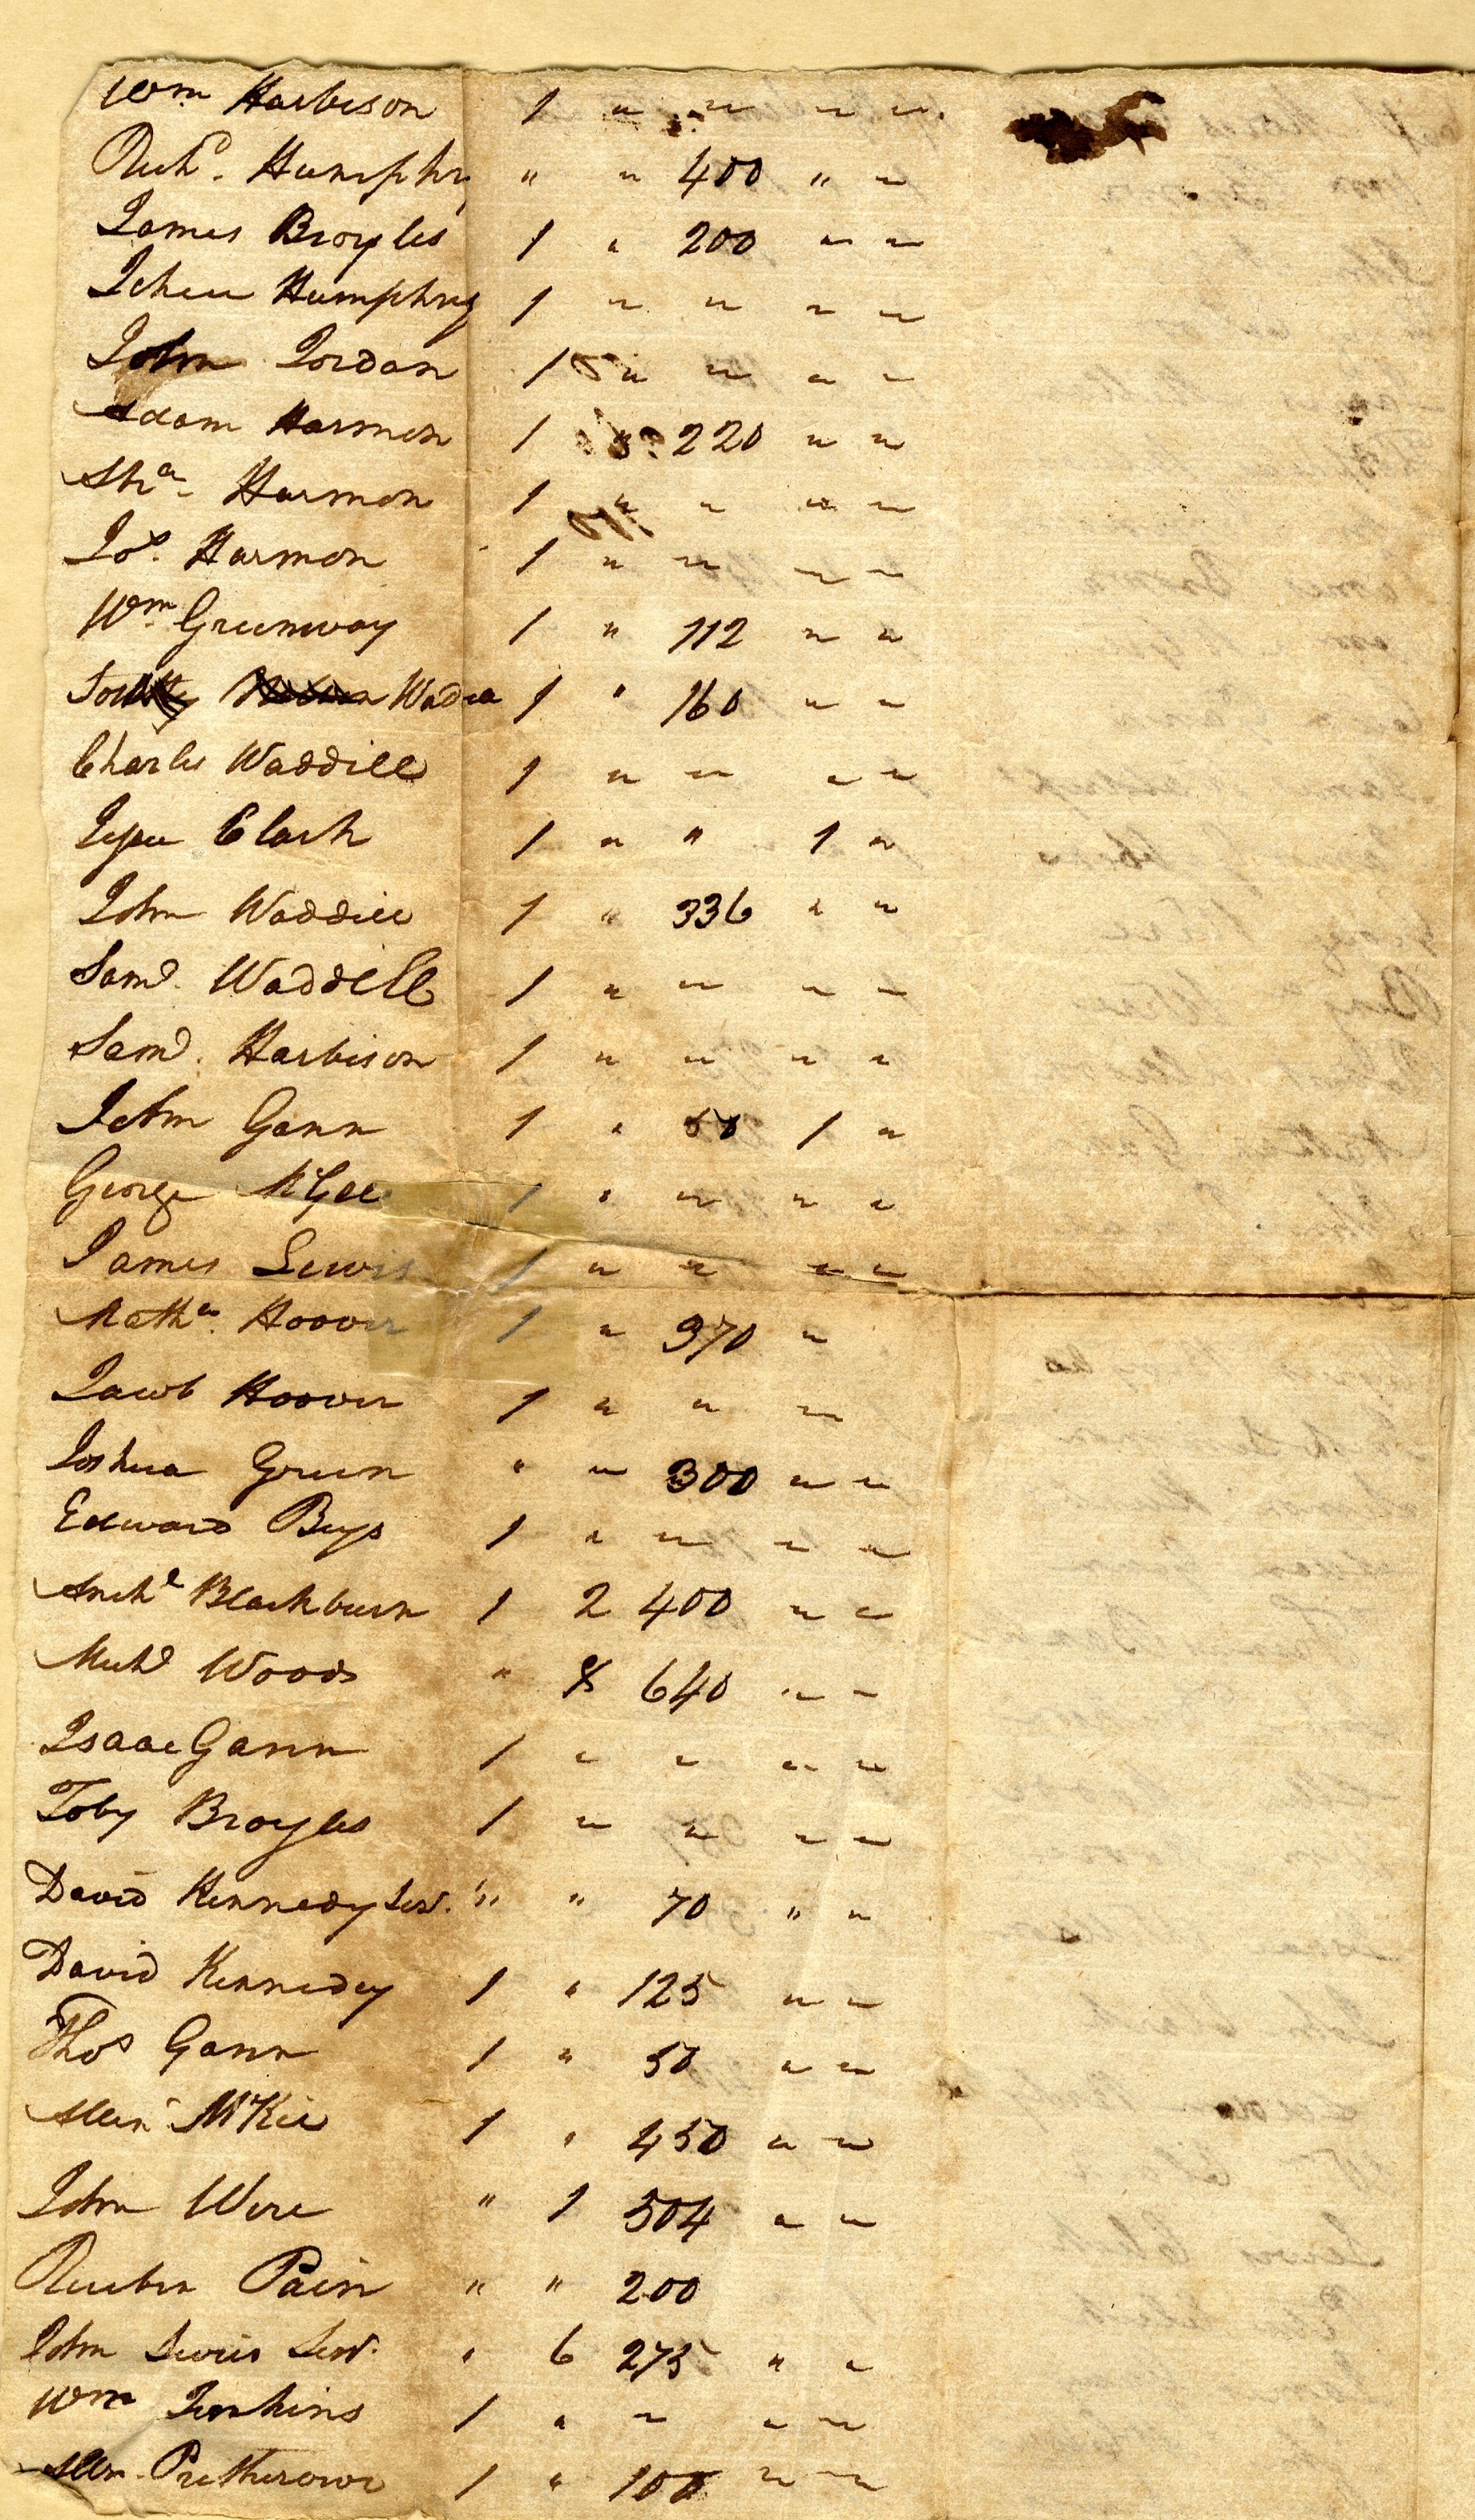 Wm Harbison 1 " " " "
Richd. Humphry " " 400 " "
James Broyles 1 " 200 " "
Jehue Humphry 1 " " " "
John Jordan 1 " " " "
Adam Harmon 1 " 220 " "
Harmon 1 " " " "
Jos. Harmon 1 " " " "
Wm Greenway 1 " 112 " "
1 " 160 " "
Charles Waddill 1 " " " "
Clark 1 " " 1 "
John Waddill 1 " 336 " "
Saml. Waddell 1 " " " "
Saml. Harbison 1 " " " "
John Gann 1 " 50 1 "
George McGee 1 " " " "
James Lewis 1 " " " "
Matths. Hoover 1 " 370 "
Jacob Hoover 1 " " "
Joshua Green " " 300 " "
Edward Bays 1 " " " "
Archd Blackburn 1 2 400 " "
Michl Woods " 640 " "
Isaac Gann 1 " " " "
Toby Broyles 1 " " " "
David Kennedy Senr. " " 70 " "
David Kennedy 1 " 125 " "
Thos Gann 1 " 50 " "
Alexr McKee 1 " 450 " "
John Were " 1 504 " "
Reuben Pain " " 200
John Lewis Senr. " 6 275 " "
Wm Jenkins 1 " " " "
Alexr. Pretherow 1 " 100 " "